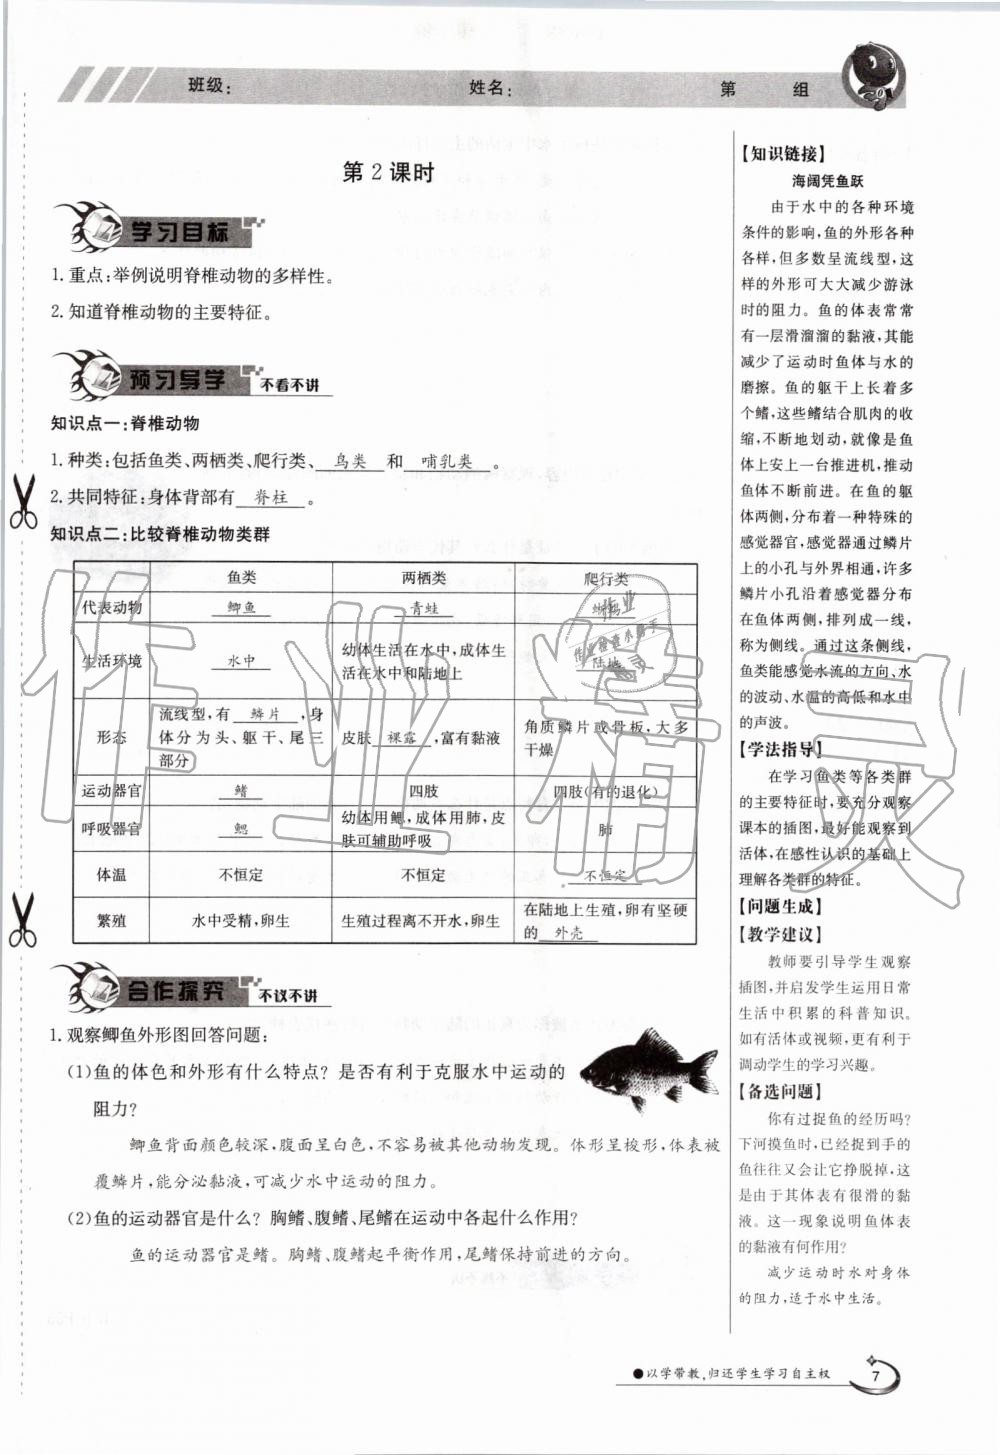 班级：　姓名：　第　组
第2课时
学习目标
1.重点:举例说明脊椎动物的多样性。
2.知道脊椎动物的主要特征。
预习导学 不看不讲
知识点一:脊椎动物
1.种类:包括鱼类、两栖类、爬行类、 鸟类 和 哺乳类 。
2.共同特征:身体背部有 脊柱 。
知识点二:比较脊椎动物类群
鱼类 两栖类 爬行类
代表动物 鲫鱼 青蛙
生活环境 水中 幼体生活在水中,成体生活在水中和陆地上 陆地
形态 流线型,有 鳞片 ,身体分为头、躯干、尾三部分 皮肤 裸露 ,富有黏液 角质鳞片或骨板,大多干燥
运动器官 鳍 四肢 四肢(有的退化)
呼吸器官 鳃 幼体用鳃,成体用肺,皮肤可辅助呼吸 肺
体温 不恒定 不恒定 不恒定
繁殖 水中受精,卵生 生殖过程离不开水,卵生 在陆地上生殖,卵有坚硬的 外壳
合作探究 不议不讲
1.观察鲫鱼外形图回答问题:
(1)鱼的体色和外形有什么特点? 是否有利于克服水中运动的
阻力?
鲫鱼背面颜色较深,腹面呈白色,不容易被其他动物发现。体形呈梭形,体表被
覆鳞片,能分泌黏液,可减少水中运动的阻力。
(2)鱼的运动器官是什么? 胸鳍、腹鳍、尾鳍在运动中各起什么作用?
鱼的运动器官是鳍。胸鳍、腹鳍起平衡作用,尾鳍保持前进的方向。
【知识链接】
海阔凭鱼跃
由于水中的各种环境
条件的影响,鱼的外形各种
各样,但多数呈流线型,这
样的外形可大大减少游泳
时的阻力。鱼的体表常常
有一层滑溜溜的黏液,其能
减少了运动时鱼体与水的
磨擦。鱼的躯干上长着多
个鳍,这些鳍结合肌肉的收
缩,不断地划动,就像是鱼
体上安上一台推进机,推动
鱼体不断前进。在鱼的躯
体两侧,分布着一种特殊的
感觉器官,感觉器通过鳞片
上的小孔与外界相通,许多
鳞片小孔沿着感觉器分布
在鱼体两侧,排列成一线,
称为侧线。通过这条侧线,
鱼类能感觉水流的方向、水
的波动、水温的高低和水中
的声波。
【学法指导】
在学习鱼类等各类群
的主要特征时,要充分观察
课本的插图,最好能观察到
活体,在感性认识的基础上
理解各类群的特征。
【问题生成】
【教学建议】
教师要引导学生观察
插图,并启发学生运用日常
生活中积累的科普知识。
如有活体或视频,更有利于
调动学生的学习兴趣。
【备选问题】
你有过捉鱼的经历吗?
下河摸鱼时,已经捉到手的
鱼往往又会让它挣脱掉,这
是由于其体表有很滑的黏
液。这一现象说明鱼体表
的黏液有何作用?
减少运动时水对身体
的阻力,适于水中生活。
●以学带教,归还学生学习自主权 7
作业精灵
作业
作业检查小帮手
精灵